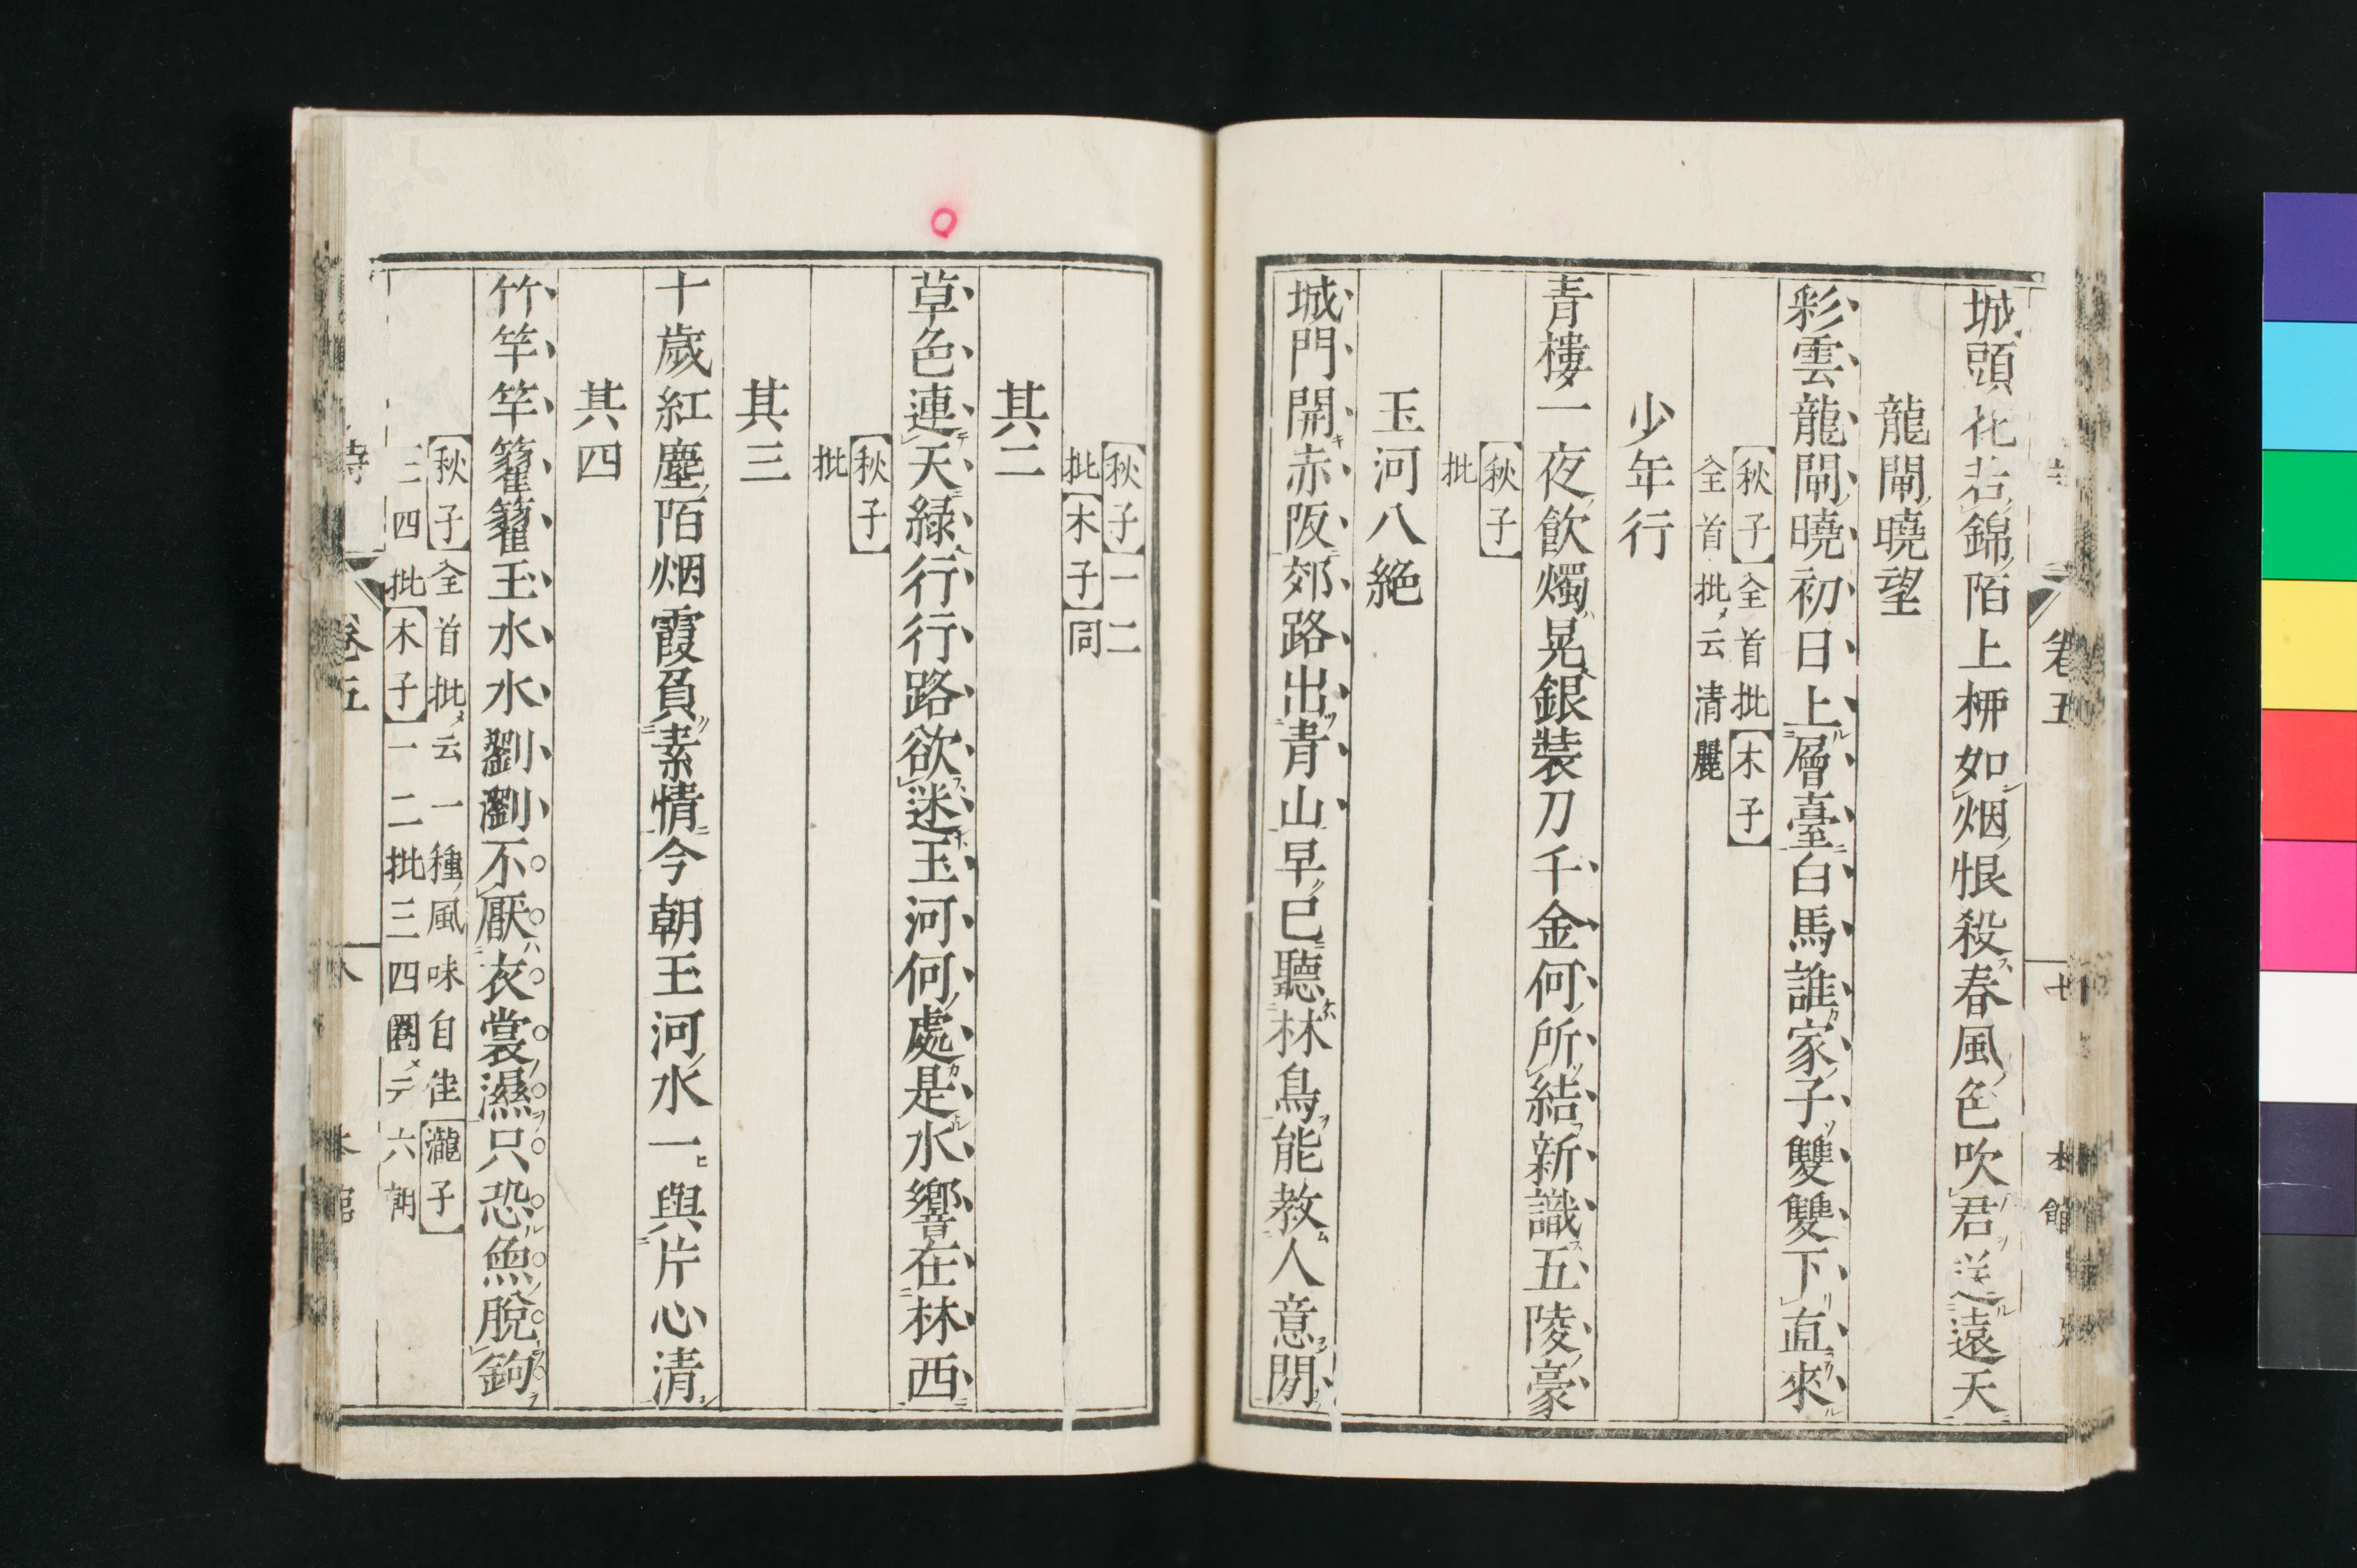 城頭花若錦陌上柳如烟恨殺春風色吹君送遠天
龍閘曉望
彩雲龍閘曉初日上層臺白馬誰家子雙雙下直來
【秋子】全首批【木子】
全首批云清麗
少年行
青樓一夜飲燭晃銀裝刀千金何所結新識五陵豪
【秋子】
批
玉河八絶
城門開赤阪郊路出青山早已聽林鳥能教人意閒
【秋子】一二
批【木子】同
其二
草色連天緑行行路欲迷玉河何處是水響在林西
【秋子】
批
其三
十歲紅塵陌烟霞負素情今朝玉河水一與片心清
其四
竹竿竿籊籊玉水水瀏瀏不厭衣裳濕只恐魚脫鉤
【秋子】全首批云一種風味自佳【瀧子】
三四批【木子】一二批三四圈云六朝
卷五
卷五